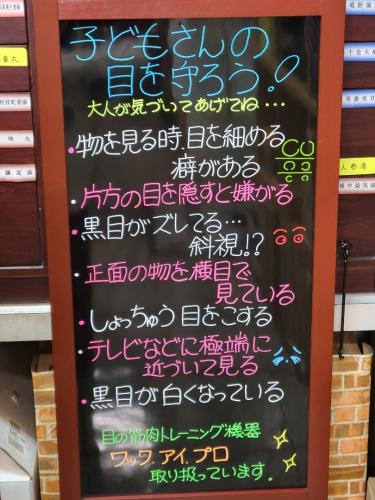 子どもさんの
目を守ろう!
大人が気づいてあげてね…
・物を見る時、目を細める
癖がある
・片方の目を隠すと嫌がる
・黒目がズレてる…
斜視!?
・正面の物を横目で
見ている
・しょっちゅう目をこする
・テレビなどに極端に
近づいて見る
・黒目が白くなっている
目の筋肉トレーニング機器
ワック.アイ.プロ
取り扱っています。